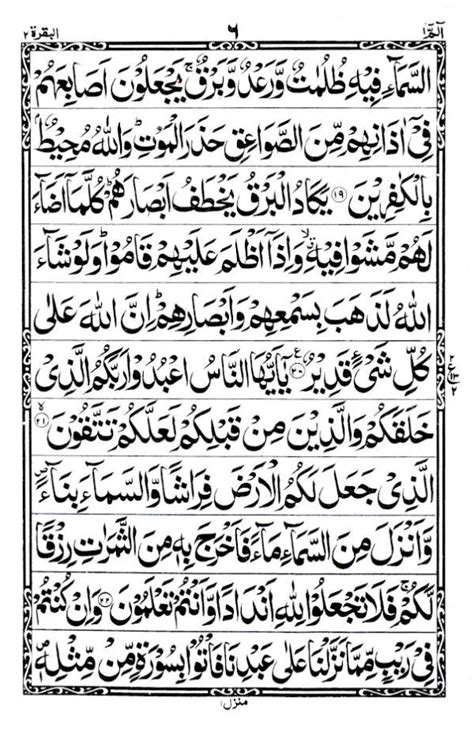 الٓمّٓ ۱ ۶ البقرة ۲
السَّمَآءِ فِيْهِ ظُلُمٰتٌ وَّرَعْدٌ وَّبَرْقٌ ۚ يَجْعَلُوْنَ اَصَابِعَهُمْ
فِيْٓ اٰذَانِهِمْ مِّنَ الصَّوَاعِقِ حَذَرَ الْمَوْتِ ؕ وَاللّٰهُ مُحِيْطٌۢ
بِالْكٰفِرِيْنَ ۱۹ يَكَادُ الْبَرْقُ يَخْطَفُ اَبْصَارَهُمْ ؕ كُلَّمَآ اَضَآءَ
لَهُمْ مَّشَوْا فِيْهِ ۙ وَاِذَآ اَظْلَمَ عَلَيْهِمْ قَامُوْا ؕ وَلَوْ شَآءَ
اللّٰهُ لَذَهَبَ بِسَمْعِهِمْ وَاَبْصَارِهِمْ ؕ اِنَّ اللّٰهَ عَلٰى
كُلِّ شَيْءٍ قَدِيْرٌ ۲۰ يٰٓاَيُّهَا النَّاسُ اعْبُدُوْا رَبَّكُمُ الَّذِيْ
خَلَقَكُمْ وَالَّذِيْنَ مِنْ قَبْلِكُمْ لَعَلَّكُمْ تَتَّقُوْنَ ۲۱
الَّذِيْ جَعَلَ لَكُمُ الْاَرْضَ فِرَاشًا وَّالسَّمَآءَ بِنَآءً ۪
وَّاَنْزَلَ مِنَ السَّمَآءِ مَآءً فَاَخْرَجَ بِهٖ مِنَ الثَّمَرٰتِ رِزْقًا
لَّكُمْ ۚ فَلَا تَجْعَلُوْا لِلّٰهِ اَنْدَادًا وَّاَنْتُمْ تَعْلَمُوْنَ ۲۲ وَاِنْ كُنْتُمْ
فِيْ رَيْبٍ مِّمَّا نَزَّلْنَا عَلٰى عَبْدِنَا فَاْتُوْا بِسُوْرَةٍ مِّنْ مِّثْلِهٖ ۪
منزل ۱